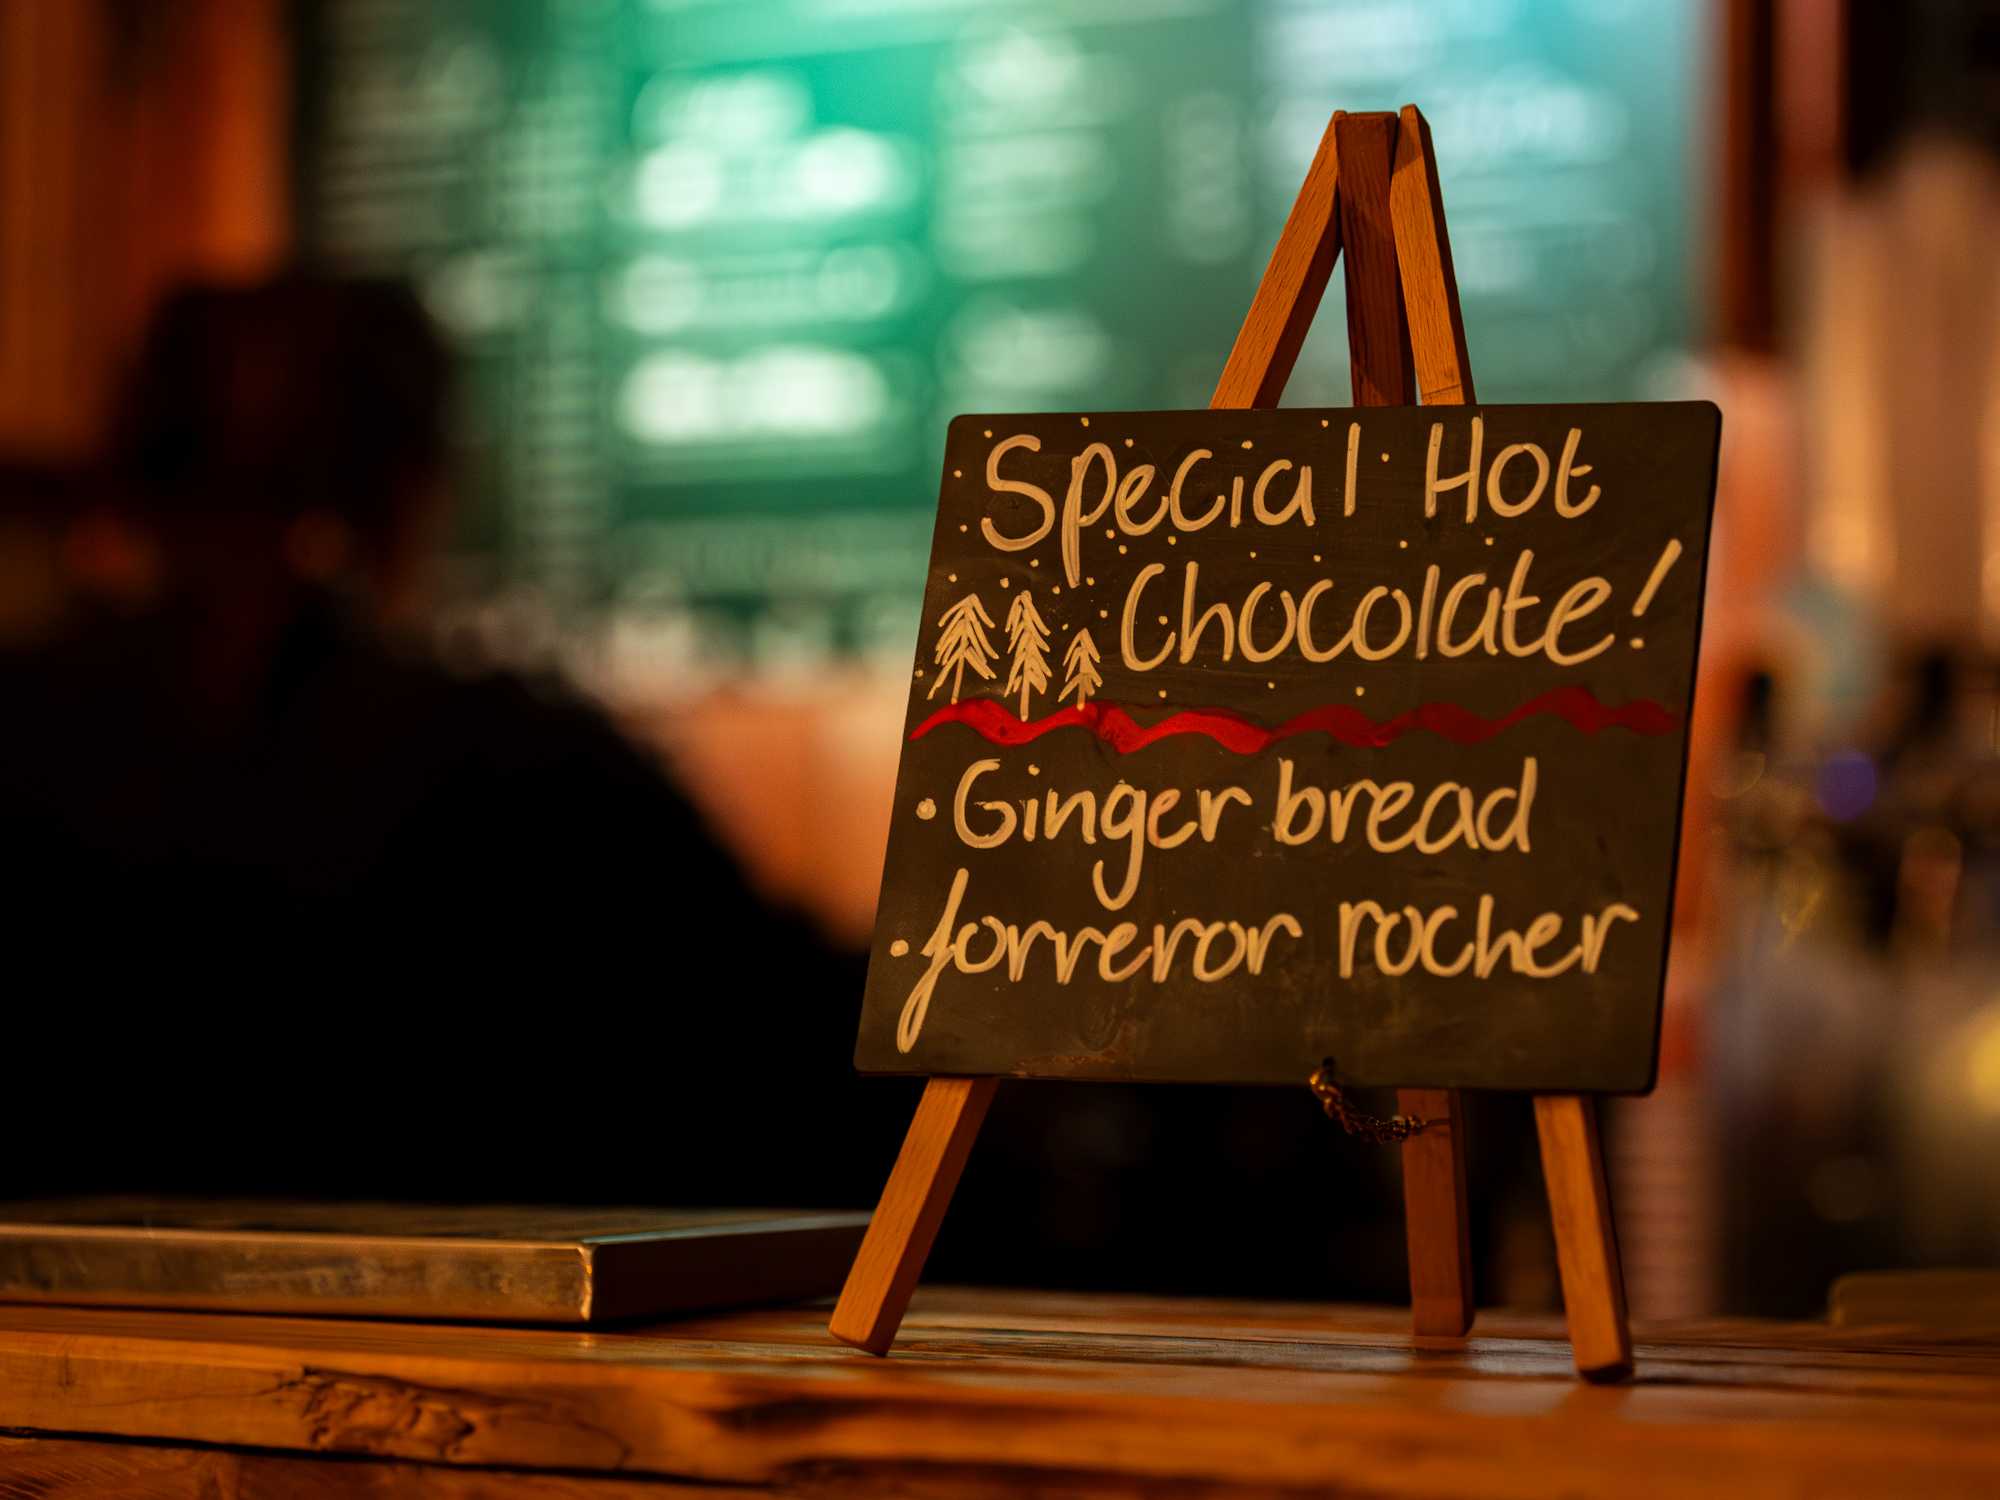 Special Hot
Chocolate!
• Ginger bread
• forreror rocher